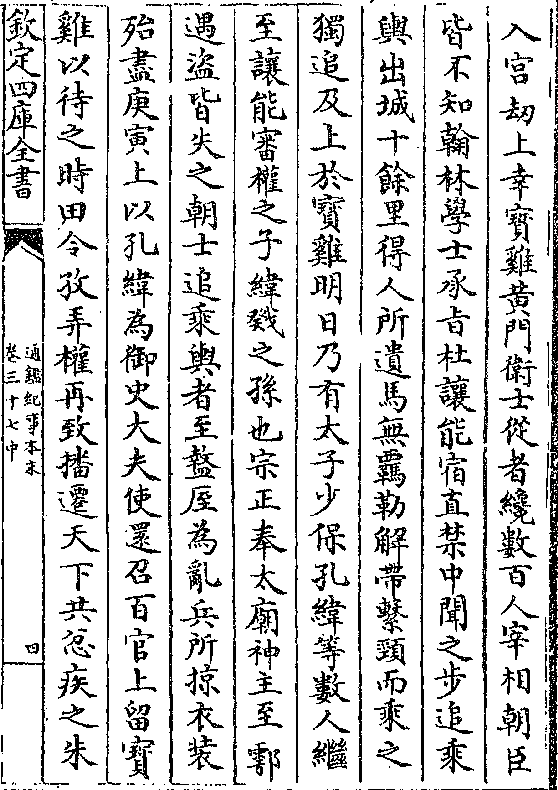 入宫刼上幸寳雞黄門衛士從者纔數百人宰相朝臣
皆不知翰林學士承㫖杜讓能宿直禁中聞之步追乘
輿出城十餘里得人所遺馬無羈勒解帶繫頸而乘之
獨追及上於寳雞明日乃有太子少保孔緯等數人繼
至讓能審權之子緯戣之孫也宗正奉太廟神主至鄠
遇盗皆失之朝士追乘輿者至盩厔為亂兵所掠衣装
殆盡庚寅上以孔緯為御史大夫使還召百官上留寳
雞以待之時田令孜弄權再致播遷天下共忿疾之朱
欽定四庫全書
通鑑紀事本末
卷三十七中
四